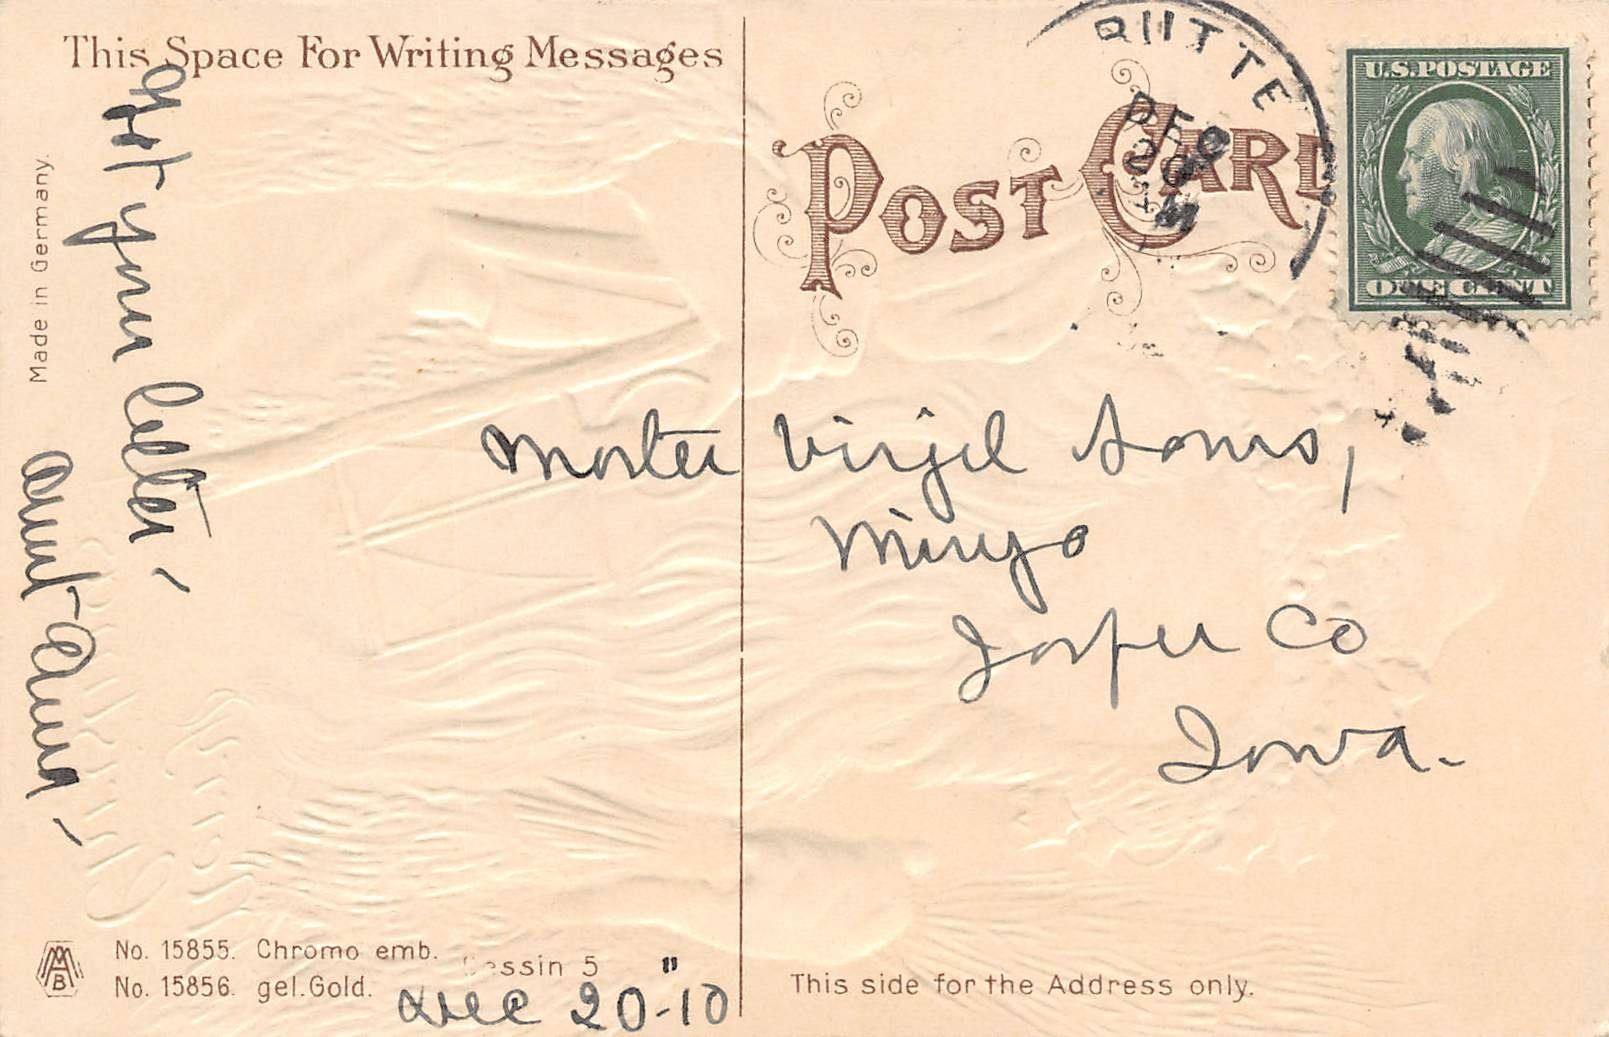 This Space For Writing Messages
Got your letter.
Aunt Anna
Made in Germany.
POST CARD
BUTTE
DEC
20
U.S. POSTAGE
ONE CENT
Master Virgil
Mingo
Jasper Co
Iowa.
MAB
No. 15855. Chromo emb.
No. 15856. gel. Gold.
Dessin 5
Dec 20-10
This side for the Address only.